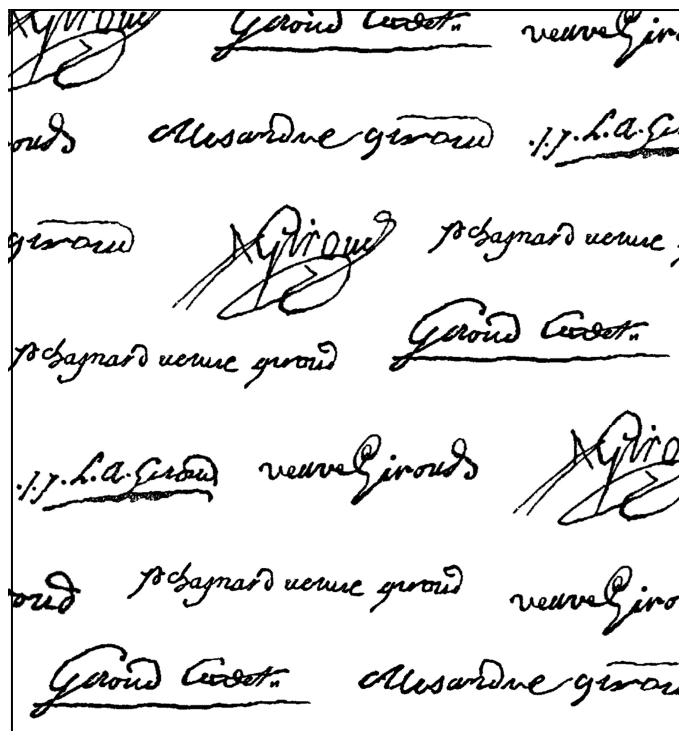 AGiroud Giroud Cadet.. veuve Giro
ouds Alexandre giroud .J.J. L.A. Gi
giroud AGiroud P chagnard veuve g
P chagnard veuve giroud Giroud Cadet..
.J.J. L.A. Giroud veuve Girouds AGiro
oud P chagnard veuve giroud veuve Giro
Giroud Cadet.. Alexandre girou